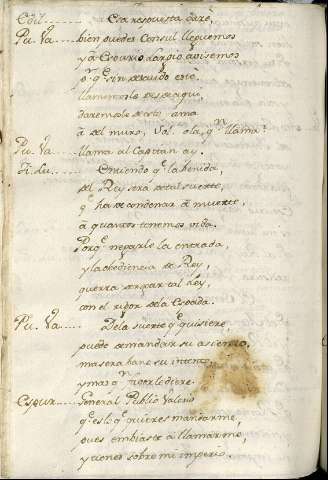 Cón..... Esta respuesta daré,
Pu. Va. bien puedes Consul lleguemos
y a Espurio Largio avisemos
llamemosle desde aqui,
del muro, Sol. ola, qn llama?
Pu. Va.... llama al Capitan ay.
Ti. Lu..... Entiendo q̃ la benida,
del Rey sera de tal suerte,
q̃ ha de condenar a muerte,
a quantos tenemos vida.
Porq̃ negarle la entrada,
y la obediencia de Rey,
querra vengar tal ley,
con el rigor de la Espada.
Pu. Va..... De la suerte q̃ quisiere,
puede demandar su asiento,
mas era bane su intento,
y mas qn
Espur..... General Publio Valerio
q̃ es lo q̃ quieres mandarme,
pues embiaste a llamarme,
y tienes sobre mi imperio.